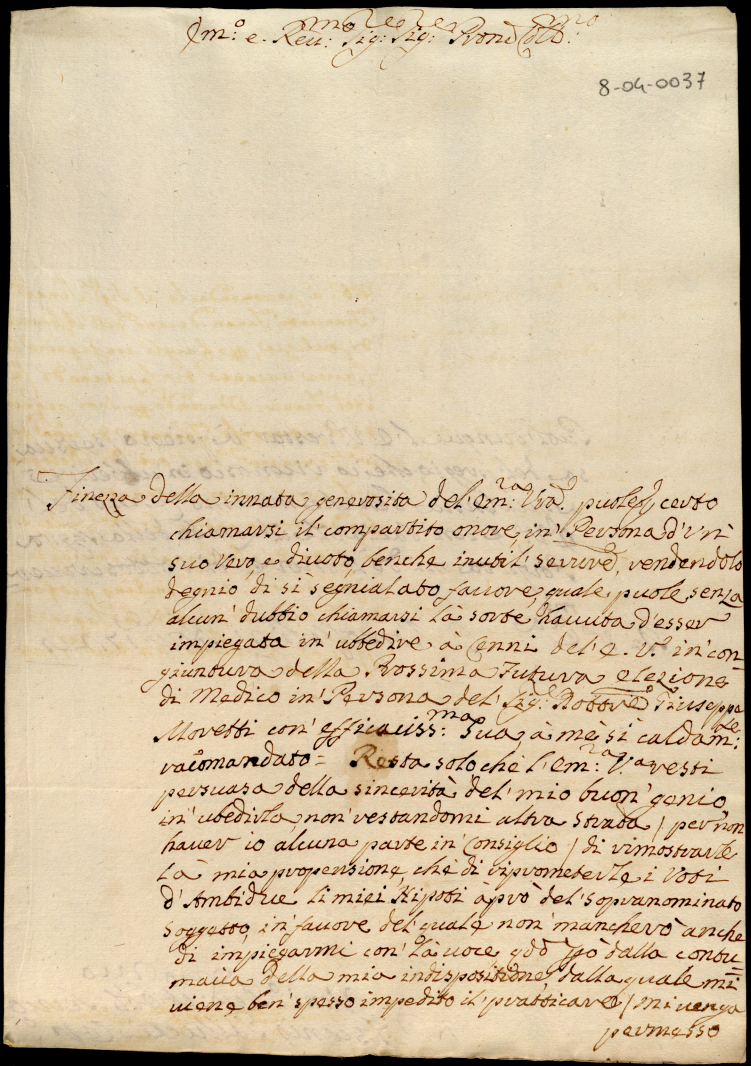 Em:º e. Reu:mo Sig:re Sig:re Pron Coll:mo
8-04-0037
Finezza della innata generosita del'Em:ra Vra. puole certo
chiamarsi il' compartito onore, in' Persona d'Un'
suo Vero, e diuoto, benche inutil' Serure, rendendolo
degnio di si segnialato fauore, quale puole senza
alcun' dubbio chiamarsi là sorte hauuta d'esser
impiegata in' ubbedire à Cenni del'E. V.ª in'con=
giuntura della Prossima Futura elezione
di Medico in' Persona del' Sig:re Dottore Giuseppe
Moretti con' efficaciss:ma Sua, à mè si caldam:te
racomandato= Resta solo chè l'Em:ra V.ª resti
persuasa della sincerità del' mio buon' genio
in' ubedirla, non' restandomi altra strada / per non
hauer io alcuna parte in' Consiglio / di rimostrarle
Là mia propensione, chè di riprometerle i Voti
d'Ambidue li miei Nipoti à prò del' sopranominato
Soggetto, in' fauore del' quale non' mancherò anche
di impiegarmi con' là uoce, qdo pò dalla contu=
macia della mia indispositione, / dalla quale mi
uiene ben' spesso impedito il' pratticare / mi uenga
permesso